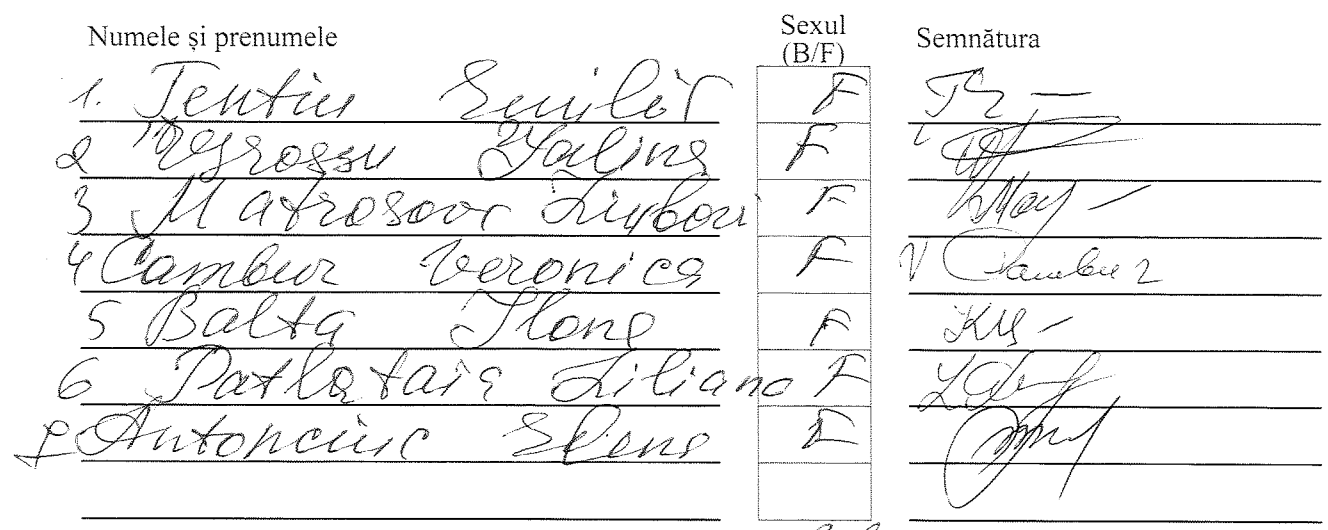 Numele și prenumele Sexul (B/F) Semnătura
1. Tentiu Emilia F
2 Negrossu Galina F
3 Matrosova Liubovi F
4 Cambur Veronica F Cambur
5 Balta Ilona F
6 Patlataia Liliana F
7 Antonciuc Elena F